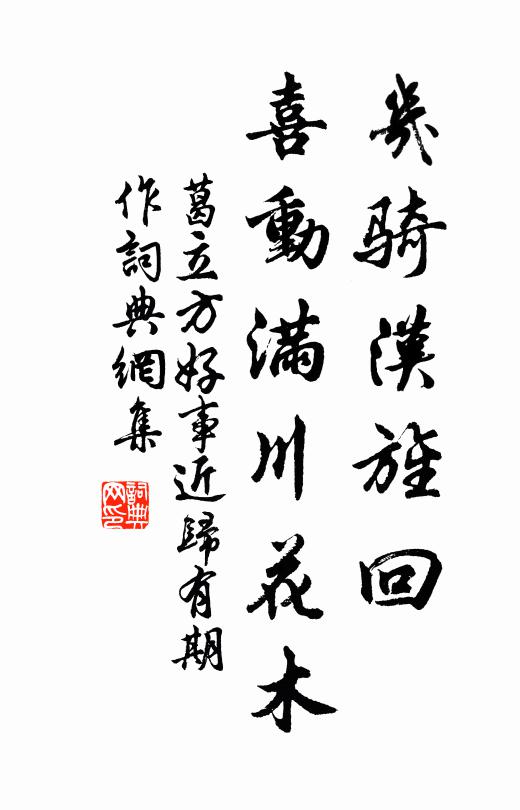 幾騎漢旌回
喜動滿川花木
葛立方好事近歸有期
作詞典網集
詞典
网印